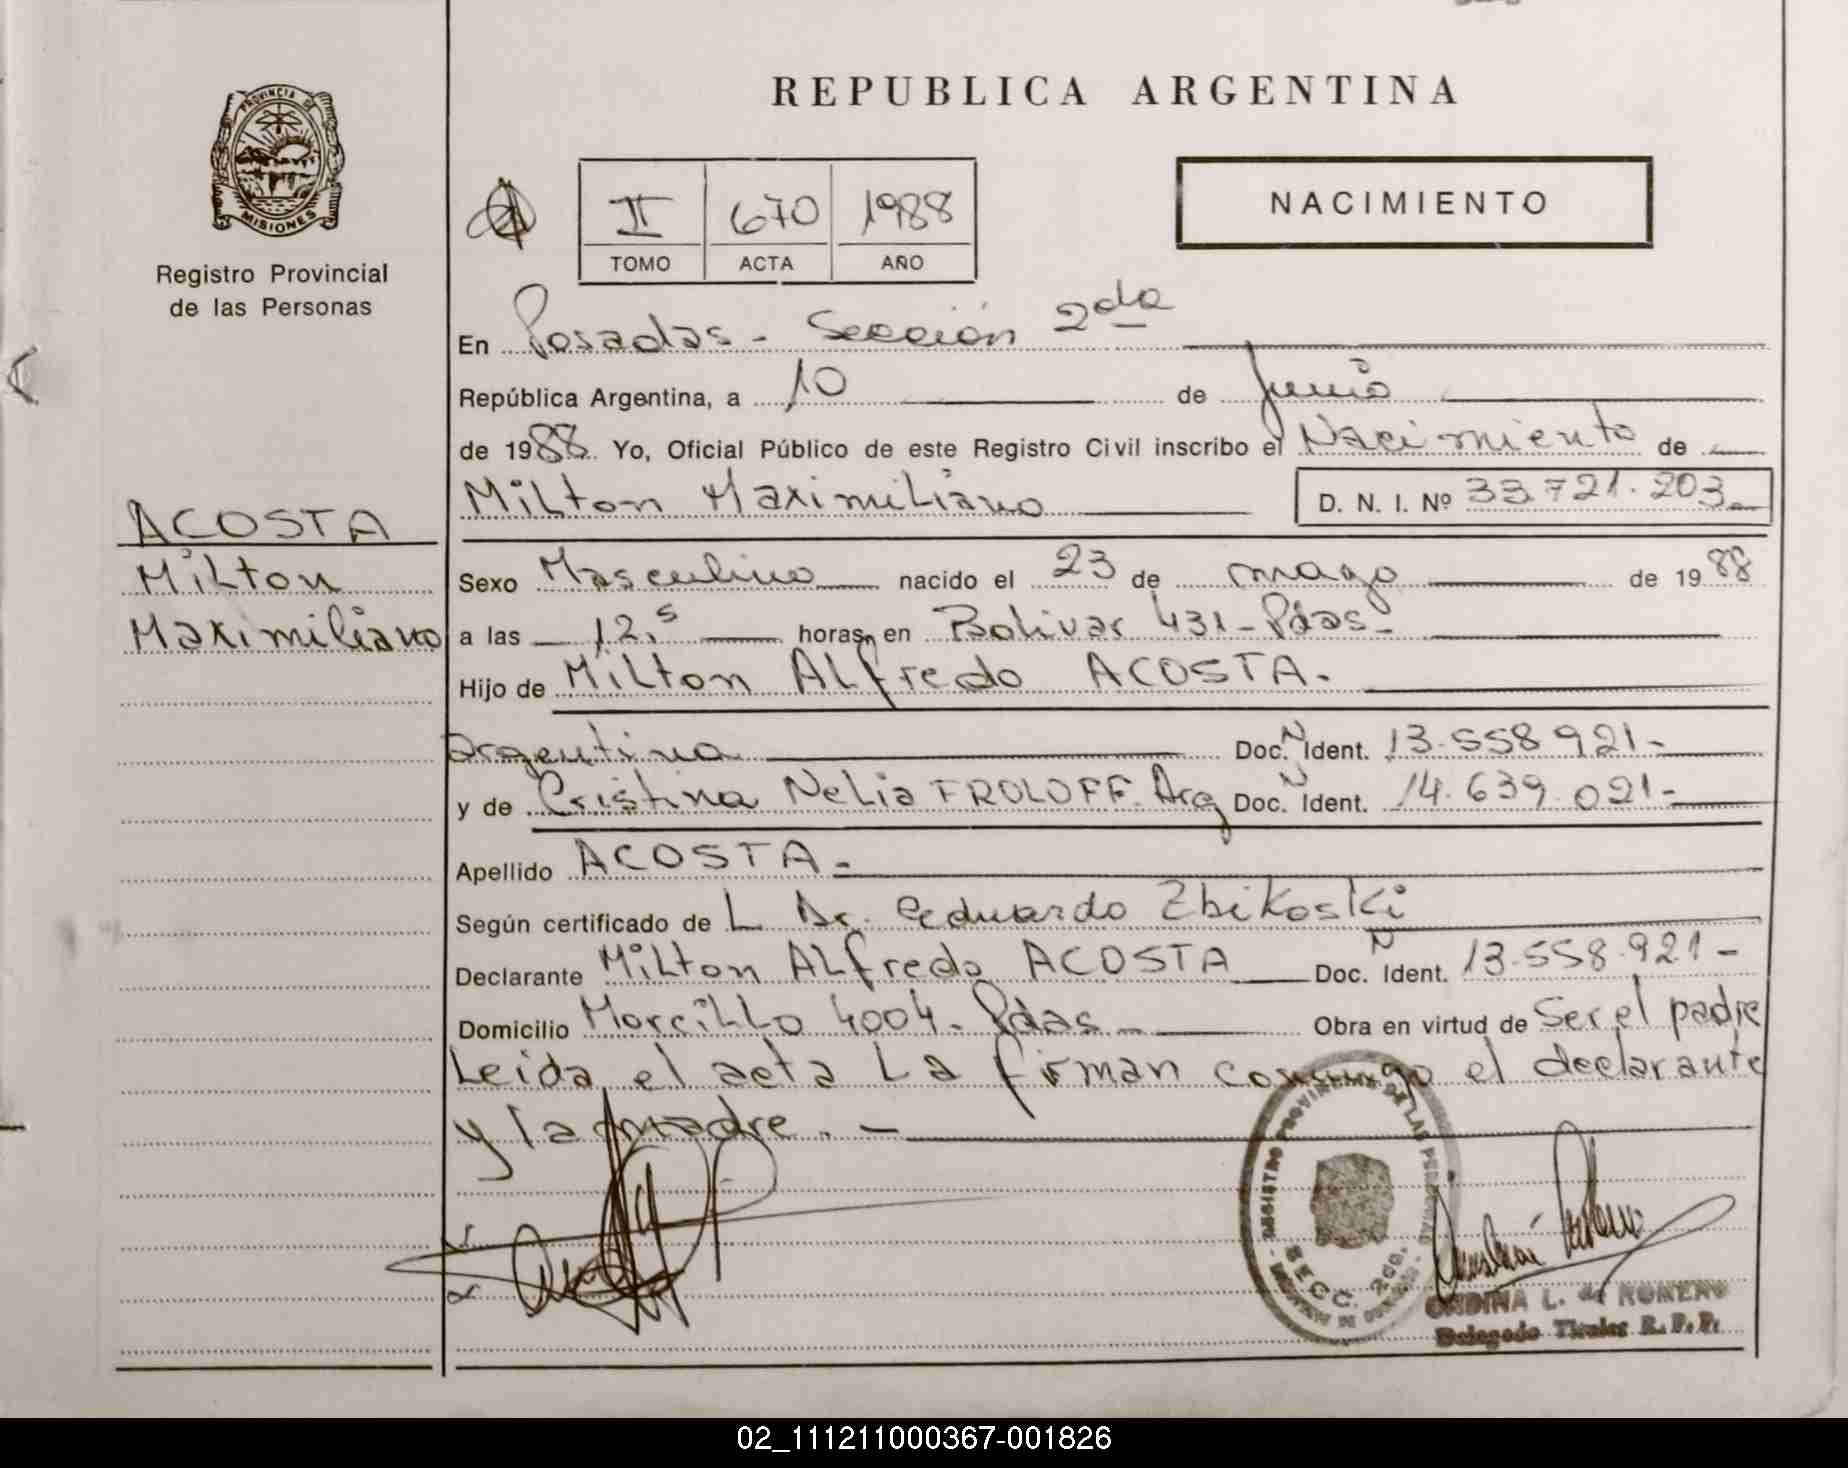 REPUBLICA ARGENTINA
PROVINCIA DE
MISIONES
Registro Provincial
de las Personas
II 670 1988
TOMO ACTA AÑO
NACIMIENTO
En Posadas - Sección 2da
República Argentina, a 10 de Junio
de 1988. Yo, Oficial Público de este Registro Civil inscribo el Nacimiento de
Milton Maximiliano D. N. I. Nº 33.721.203
ACOSTA
Milton
Maximiliano
Sexo Masculino nacido el 23 de mayo de 1988
a las 12,5 horas, en Bolivar 431 - Pdas -
Hijo de Milton Alfredo ACOSTA.
argentino Doc. N Ident. 13.558.921-
y de Cristina Nelia FROLOFF. Arg Doc. N Ident. 14.639.021-
Apellido ACOSTA -
Según certificado de L Dr. Eduardo Zbikoski
Declarante Milton Alfredo ACOSTA Doc. N Ident. 13.558.921 -
Domicilio Morcillo 4004 - Pdas - Obra en virtud de Ser el padre
Leida el acta La firman conmigo el declarante
y la madre. -
REGISTRO PROVINCIAL DE LAS PERSONAS
SECC. 2da.
ONDINA L. de ROMERO
Delegado Titular R. P. P.
02_111211000367-001826